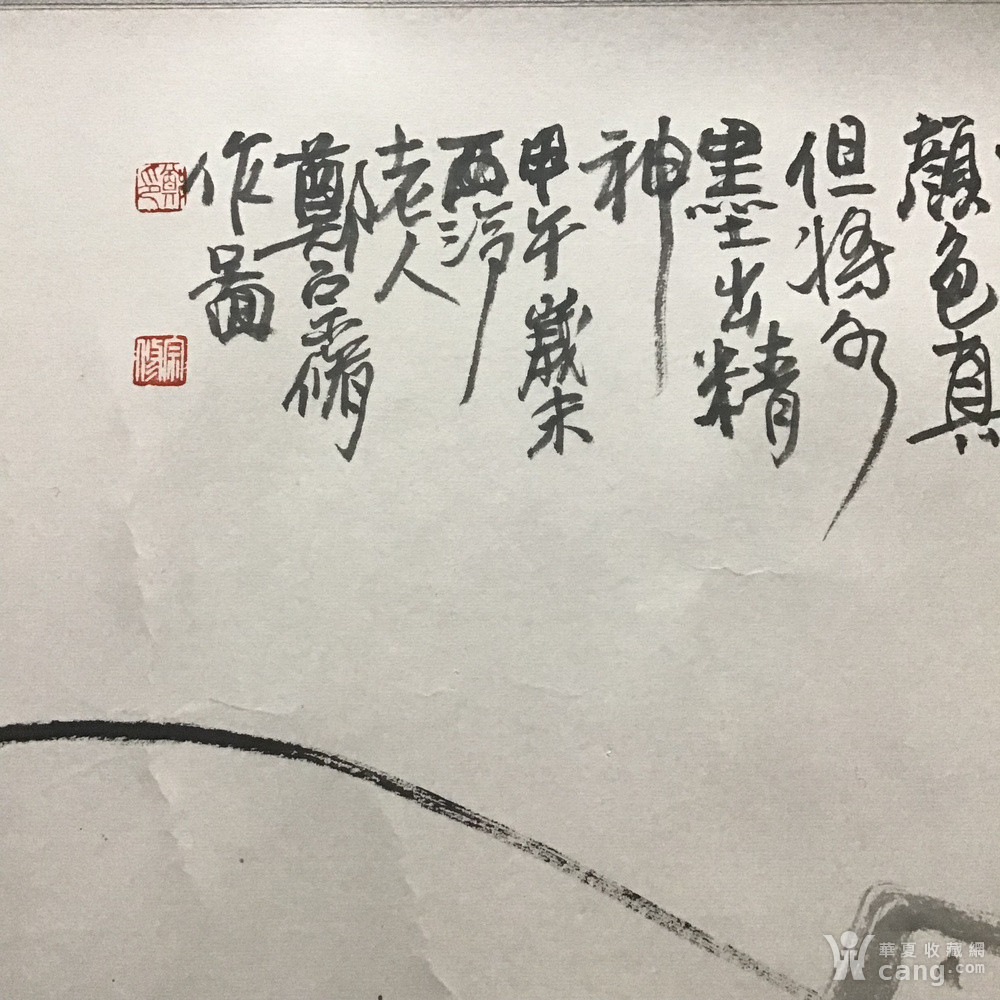 顏色真
但將水
墨出精
神
甲午歲末
西泠
老人
鄭
作圖
宗脩
華夏收藏網
cang.com